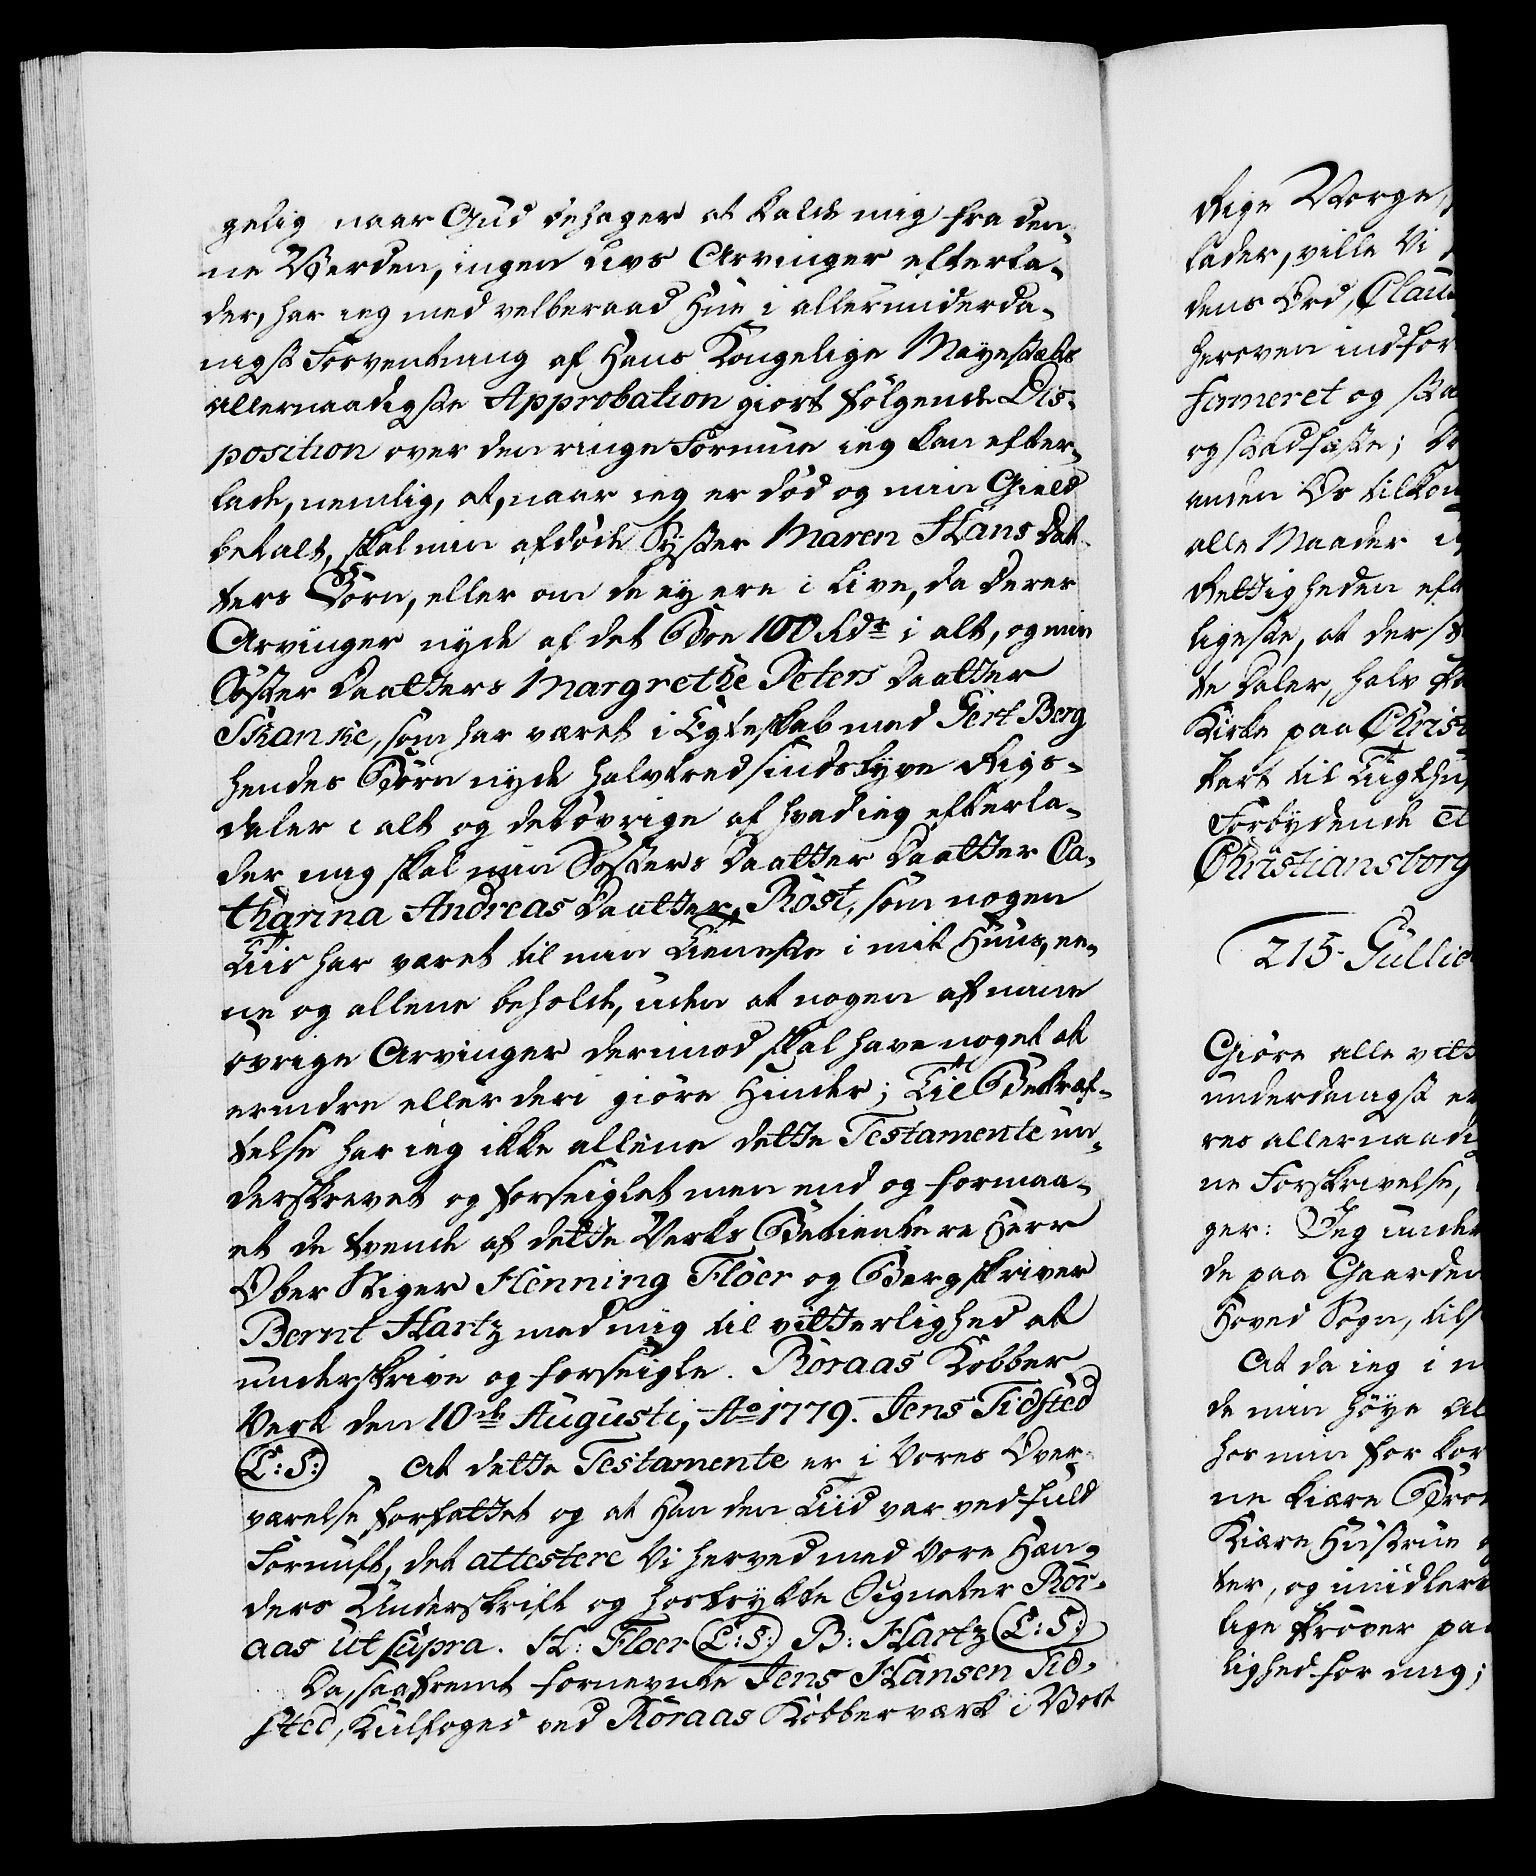 gelig naar Gud behager at kalde mig fra den-
ne Verden, ingen Livs Arvinger efterla-
der, har ieg med velberaad Hue i allerunderda-
nigst Forventning af Hans Kongelige Mayestæts
allernaadigste Approbation giort følgende Dis-
position over den ringe Formue ieg kan efter-
lade, nemlig, at, naar ieg er død og min Gield
betalt, skal min afdøde Syster Maren Hans Dat-
ters Børn, eller om de ey ere i Live, da deres
Arvinger nyde af det Boe 100 Rdr i alt, og min
Søster Daatters Margrethe Peters Daatter
Skanke, som har været i Egteskab med Gert Berg
hendes Børn nyde halvtredsindstyve Rigs-
daler i alt og det øvrige af hvad ieg efterla-
der mig skal min Søsters Daatter Daatter Ca-
tharina Andreas Daatter Røst, som nogen
Tiid har været til min Tieneste i mit Huus, ee-
ne og allene beholde, uden at nogen af mine
øvrige Arvinger derimod skal have noget at
erindre eller deri giøre Hinder; Til Bekræf-
telse har ieg ikke allene dette Testamente un-
derskrevet og forseiglet men end og formaa-
et de tvende af dette Verks Betientere Herr
Ober Stiger Henning Fløer og Bergskriver
Bernt Hartz med mig til vitterlighed at
underskrive og forseigle. Røraas Kobber
Verk den 10de Augusti, Ao 1779. Jens Tidsted
(L:S:) At dette Testamente er i Vores Over-
værelse forfattet og at Han den Tiid var ved fuld
Fornuft, det attestere Vi herved med Vore Hæn-
ders Underskrift og hostrykte Signeter Rør-
aas ut supra. H: Floer (L:S:) B: Hartz (L:S:)
Da, saafremt fornevnte Jens Hansen Tid-
sted, Kulfoged ved Røraas Kobberværk i Vort
Rige Norge,
lader, ville Vi
dens Ord, Clau
herover indfør
firmeret og sta
og stadfæste;
anden Os tilkom
alle Maader
Rettigheden eft
ligeste, at der
te Daler, halv
Kirke paa Christ
part til Tugthu
Forbydende
Christiansborg
215. Gullic
Giøre alle vitt
underdanigst
res allernaadi
ne Forskrivelse,
ger: Jeg under
de paa Gaarden
Hoved Sogn, tils
At da ieg i
de min høye Al
hos min for
ne kiære
Kiære Hustrue
ter, og imidler
lige Prøver paa
lighed for mig;